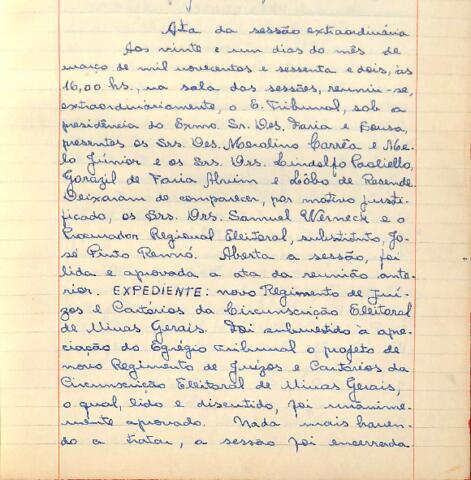 Ata da sessão extraordinária
Aos vinte e um dias do mês de
março de mil novecentos e sessenta e dois, às
16,00 hs., na sala das sessões, reuniu-se,
extraordinàriamente, o E. Tribunal, sob a
presidência do Exmo. Sr. Des. Faria e Sousa,
presentes os Srs. Des. Merolino Corrêa e Me-
lo Júnior e os Srs. Drs. Lindolfo Paoliello,
Gorazil de Faria Alvim e Lôbo de Resende.
Deixaram de comparecer, por motivo justi-
ficado, os Srs. Drs. Samuel Werneck e o
Procurador Regional Eleitoral, substituto, Jo-
sé Pinto Rennó. Aberta a sessão, foi
lida e aprovada a ata da reunião ante-
rior. EXPEDIENTE: novo Regimento de Juí-
zos e Cartórios da Circunscrição Eleitoral
de Minas Gerais. Foi submetido à apre-
ciação do Egrégio Tribunal o projeto de
novo Regimento de Juízos e Cartórios da
Circunscrição Eleitoral de Minas Gerais,
o qual, lido e discutido, foi unânime-
mente aprovado. Nada mais haven-
do a tratar, a sessão foi encerrada